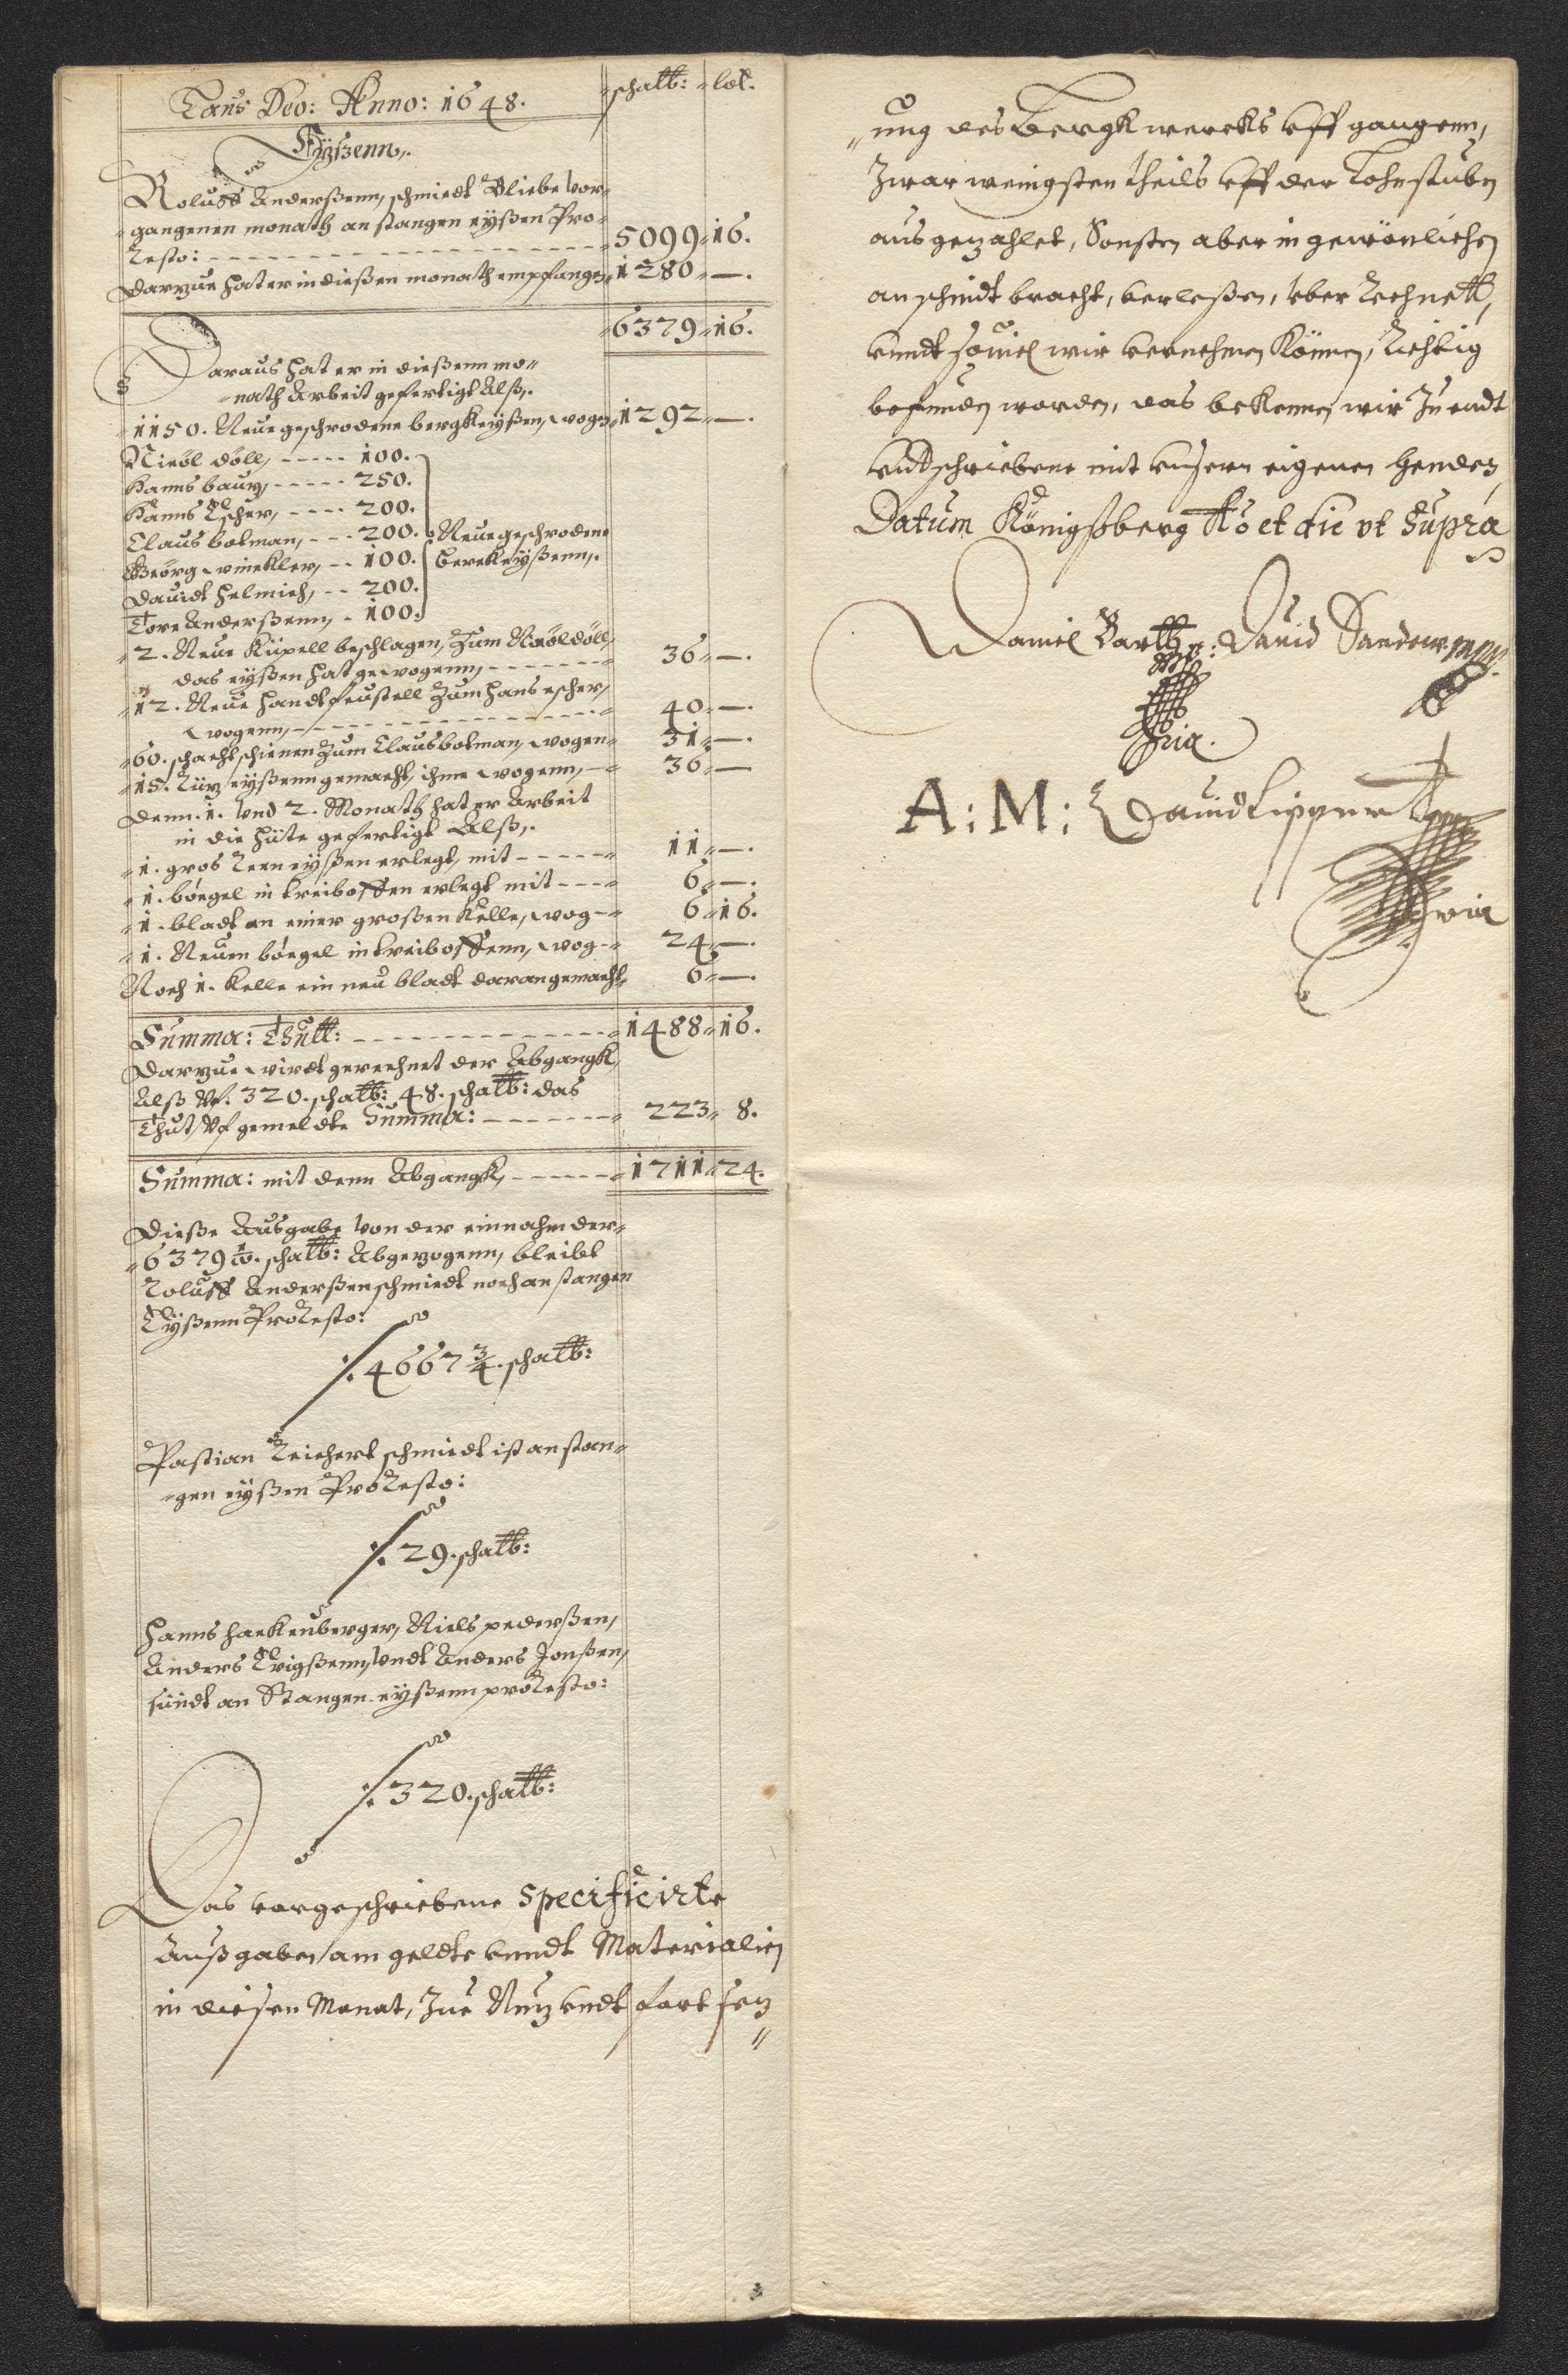 Laus Deo: Anno: 1648. schalb: lod.
Eÿßenn,
Roluff Anderßenn, schmiedt Bliebe vor-
gangenen monath an stangen eÿßen Pro-
Resto: 5099 16.
Darzue hat er in dießen monath empfangen 1280 —.
6379 16.
Daraus hat er in dießenn mo-
nath Arbeit gefertigt Alß,
1150. Neue geschrodene bergkeÿßen, wogen 1292 —.
Nicöl döll, 100.
Hanns baur, 250.
Hanns Escher, 200.
Claus bolman, 200. Neue geschrodene
Geörg winckler, 100. Berckeÿßenn,
Dauidt Helmich, 200.
Tore Anderßenn, 100.
2. Neue Küpell beschlagen, Zum Nicöl döll,
das eÿßen hat gewogenn, 36 —.
12. Neue handtfeustell Zum Hans escher,
wogenn, 40 —.
60. schachtschienen Zum Claus bolman, wogen 31 —.
15. eÿßenn gemacht, ihme wogenn, 36 —
Denn. 1. vnd 2. Monath hat er Arbeit
in die hüte gefertigt Alß,
1. gros Reneÿßen erlegt, mit 11 —.
1. böegel in treiboffen erlegt mit 6 —.
1. bladt an einer großen Kelle, wog 6 16.
1. Neuen böegel in treiboffenn, wog 24 —.
Noch 1. Kelle ein neu bladt daran gemacht, 6 —.
Summa: Thutt: 1488 16.
Darzue wirdt gerechnet der Abgangk,
Alß Vf. 320. schalb: 48. schalb: das
Thut Vf gemeldte Summa: 223 8.
Summa: mit denn Abgangk, 1711 24.
Dieße Ausgabe von der einnahm der
6379 schalb: Abgezogenn, bleibt
Roluff Anderßen schmiedt noch an stangen
Eÿßenn Pro Resto:
4667 3/4. schalb:
Pastian Reichert schmiedt ist an stan-
gen eÿßen Pro Resto:
29. schalb:
Hanns Hackenberger, Niels pederßen,
Anders Erigßenn, vndt Anders Jonßen,
sündt an Stangen eÿßenn pro Resto:
320. schalb:
Das vorgeschriebene specificirte
Außgaben am geldte vnndt Materialien
in diesen Monat, Zue Nuz vndt fort sez
ung des Bergkwercks vffgangenn,
Zwar wenigsten theils vff der Lohnstuben
ausgezahlet, Sonsten aber in gewönlichen
anschnidt bracht, verleßen, vber Rechnett,
vnndt souiel wir vernehmen Können, Richtig
befunden worden, das bekennen wir Zu endt
vndtschriebene mit vnsern eigenen Henden,
Datum Königsberg Ao et die vt Supra
Daniel Barth: Dauid Sandew mpp.
A: M: Dauidt Lippertt